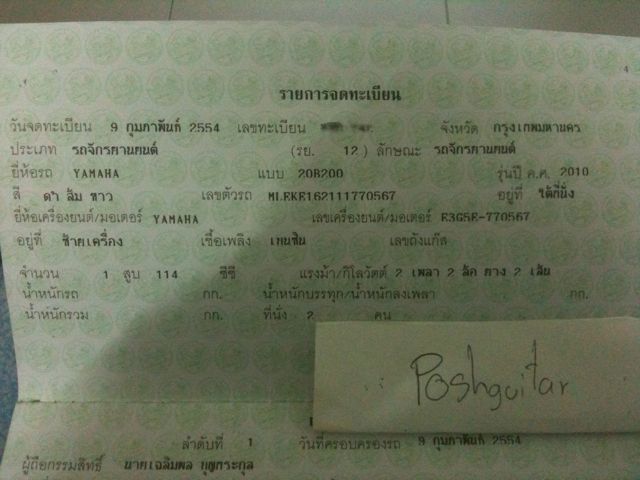 รายการจดทะเบียน
วันจดทะเบียน 9 กุมภาพันธ์ 2554 เลขทะเบียน จังหวัด กรุงเทพมหานคร
ประเภท รถจักรยานยนต์ (รย. 12) ลักษณะ รถจักรยานยนต์
ยี่ห้อรถ YAMAHA แบบ 20B200 รุ่นปี ค.ศ. 2010
สี ดำ ส้ม ขาว เลขตัวรถ MLEKE162111770567 อยู่ที่ ใต้ที่นั่ง
ยี่ห้อเครื่องยนต์/มอเตอร์ YAMAHA เลขเครื่องยนต์/มอเตอร์ E3G5E-770567
อยู่ที่ ซ้ายเครื่อง เชื้อเพลิง เบนซิน เลขถังแก๊ส
จำนวน 1 สูบ 114 ซีซี แรงม้า/กิโลวัตต์ 2 เพลา 2 ล้อ ยาง 2 เส้น
น้ำหนักรถ กก. น้ำหนักบรรทุก/น้ำหนักลงเพลา กก.
น้ำหนักรวม กก. ที่นั่ง 2 คน
Poshguitar
ลำดับที่ 1 วันที่ครอบครองรถ 9 กุมภาพันธ์ 2554
ผู้ถือกรรมสิทธิ์ นายเฉลิมพล บุญกระกูล